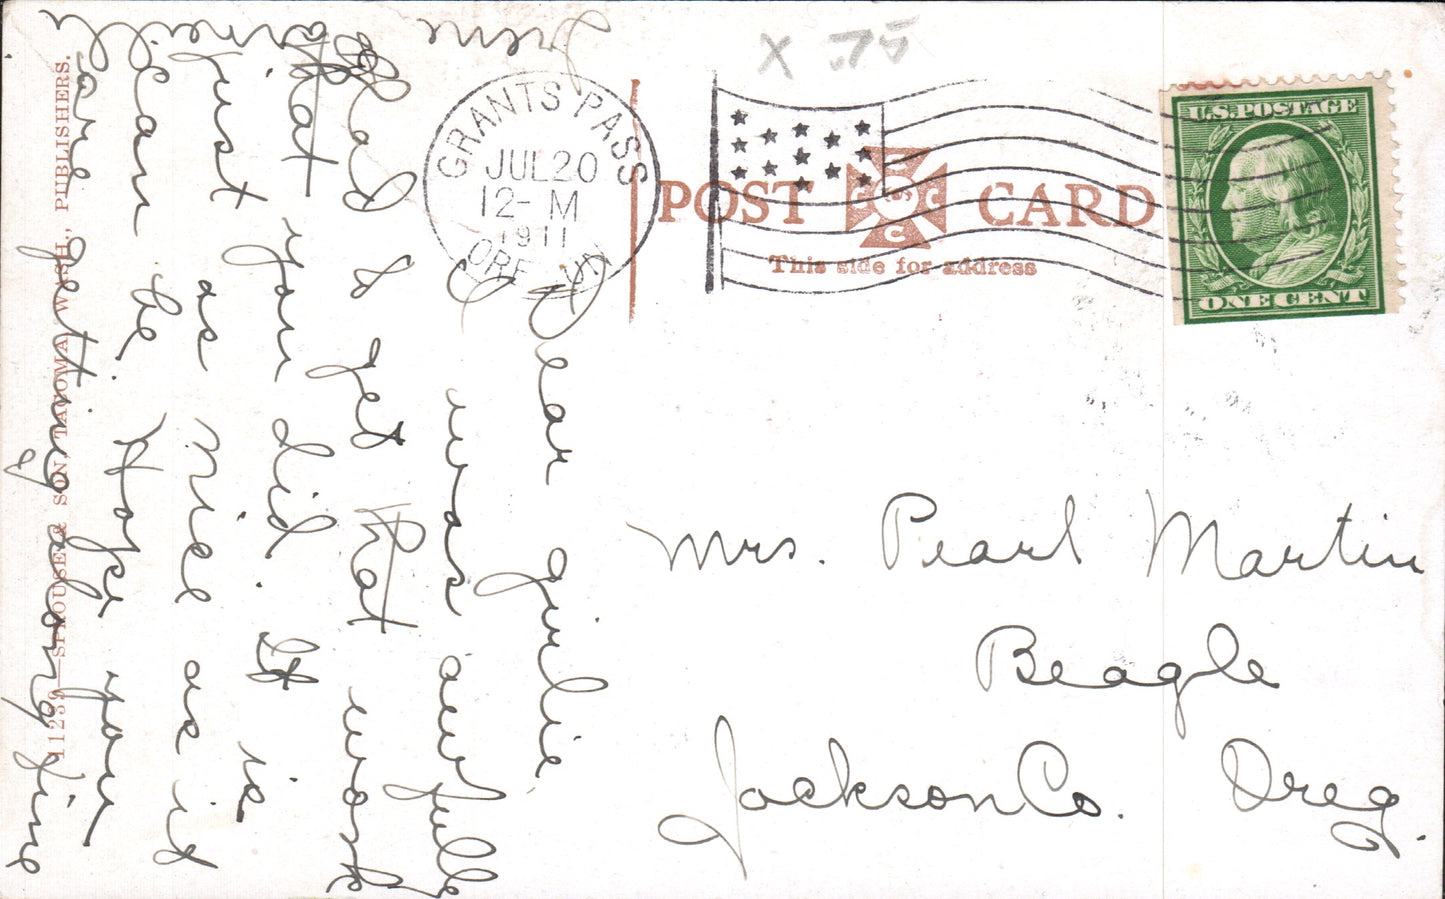 X .75
GRANTS PASS
JUL 20
12- M
1911
ORE
U.S. POSTAGE
ONE CENT
POST CARD
This side for address
Mrs. Pearl Martin
Beagle
Jackson Co. Oreg.
Dear girlie
I was awfully
glad to get that work
that you did. It is
just as nice as it
can be. Hope you
are getting along fine
Irene
11239—SPROUSE & SON, TACOMA, WASH., PUBLISHERS.